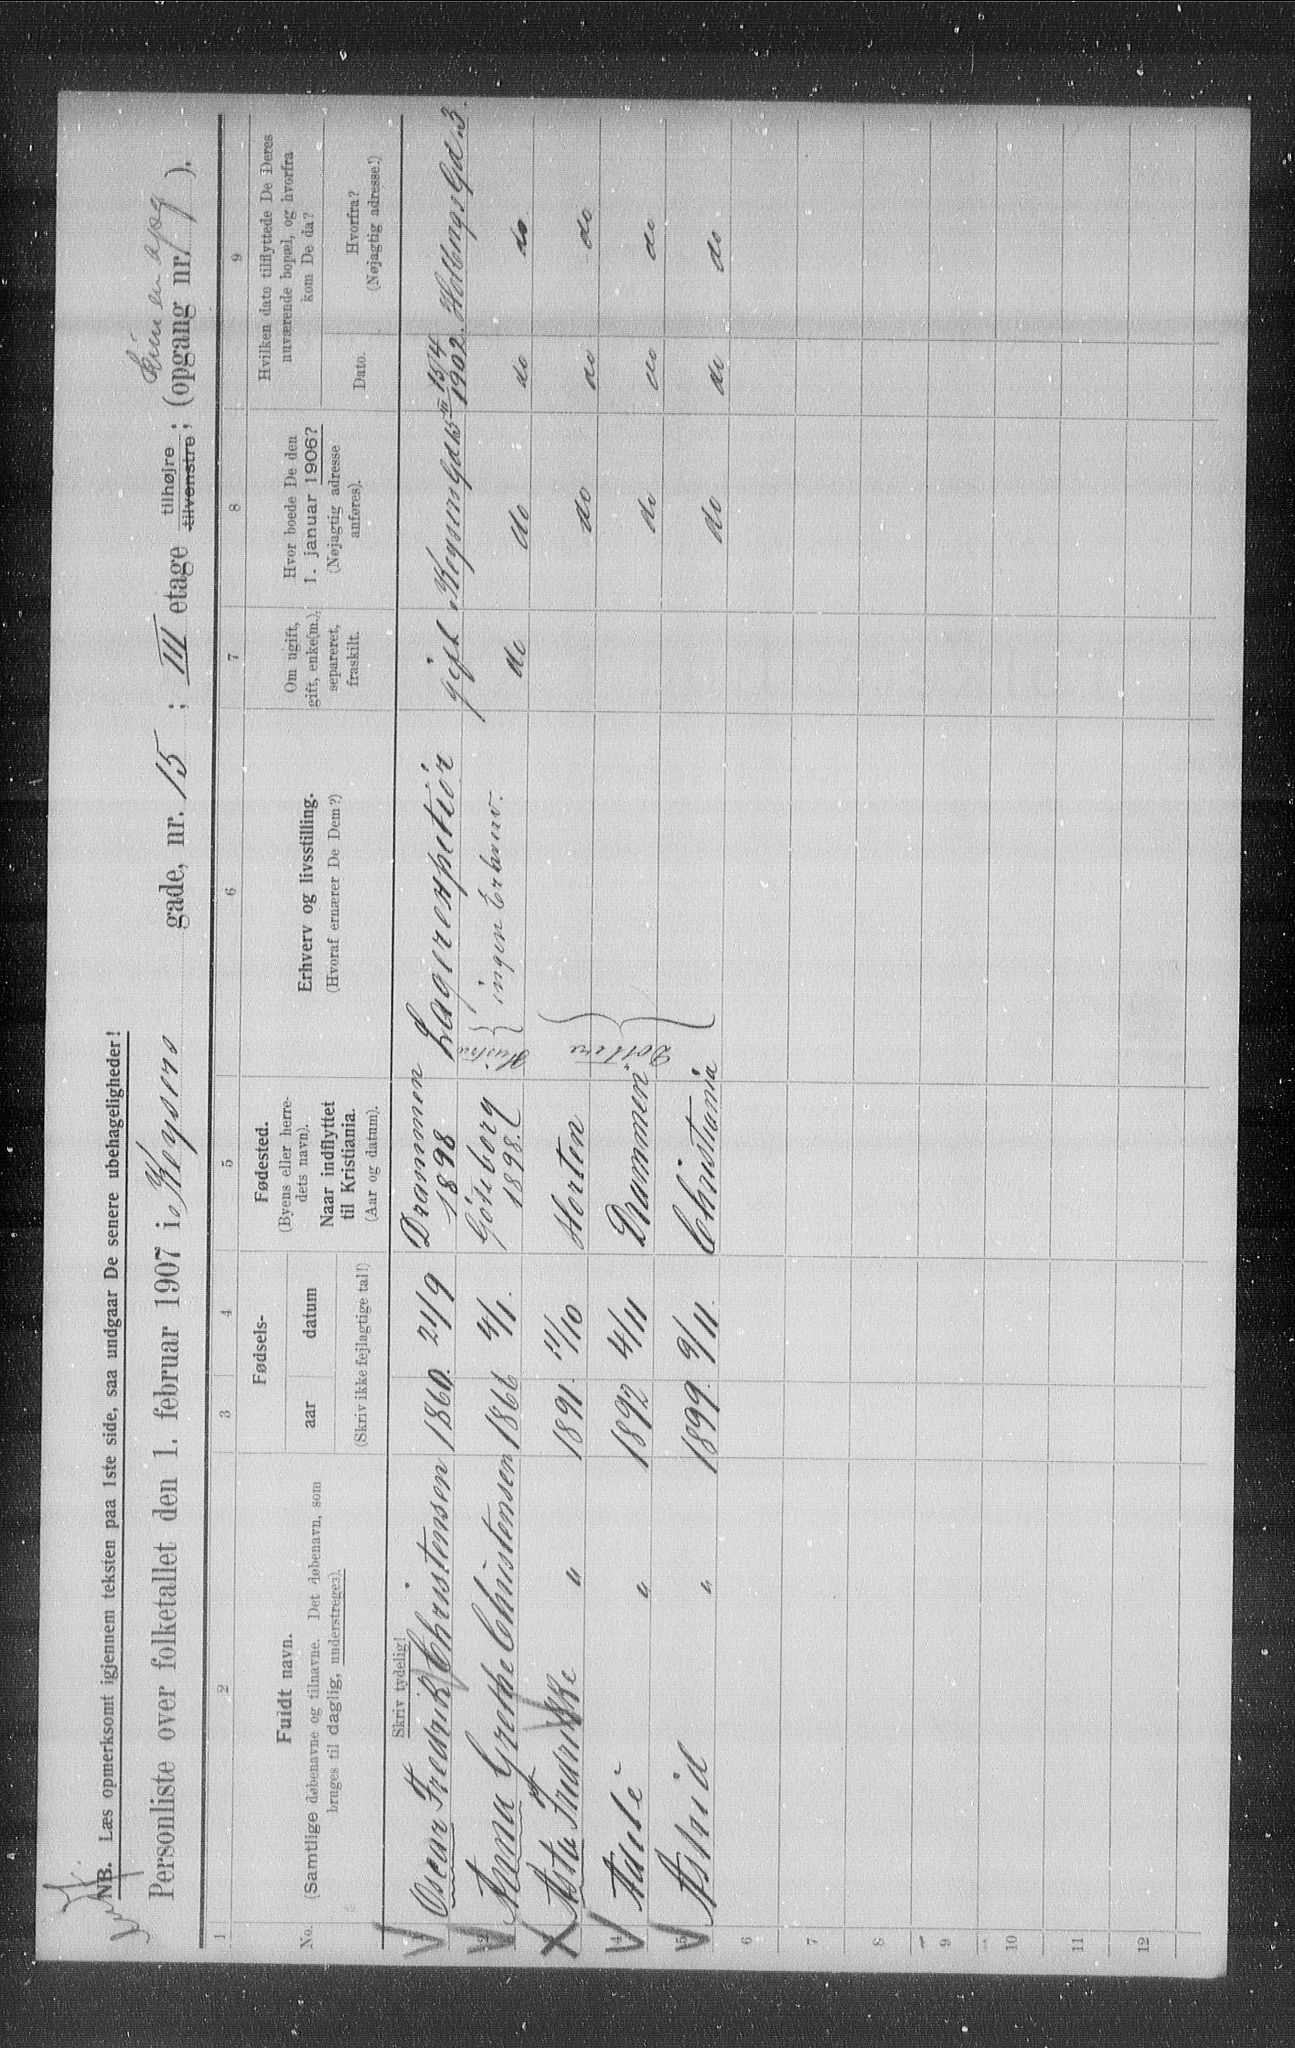 NB. Læs opmerksomt igjennem teksten paa 1ste side, saa undgaar De senere ubehageligheder!
Personliste over folketallet den 1. februar 1907 i Keysers gade, nr. 15 ; III etage tilhøjre tilvenstre ; (opgang nr. ).
1 2 3 4 5 6 7 8 9
No.
Fuldt navn.
(Samtlige døbenavne og tilnavne. Det døbenavn, som
bruges til daglig, understreges).
Fødsels-
aar datum
(Skriv ikke fejlagtige tal!)
Fødested.
(Byens eller herre-
dets navn).
Naar indflyttet
til Kristiania.
(Aar og datum).
Erhverv og livsstilling.
(Hvoraf ernærer De Dem?)
Om ugift,
gift, enke(m.),
separeret,
fraskilt.
Hvor boede De den
1. januar 1906?
(Nøjagtig adresse
anføres).
Hvilken dato tilflyttede De Deres
nuværende bopæl, og hvorfra
kom De da?
Dato.
Hvorfra?
(Nøjagtig adresse!)
Skriv tydelig!
1 Oscar Fredrik Christensen 1860. 21/9 Drammen 1898 Lagerexpetiør gift Keysersgd 15 III 15/4 1902. Holbergs Gd. 3.
2 Anna Grethe Christensen 1866 4/1. Göteborg 1898. Hustru ingen Erhverv. do do do do
3 Asta Fredrikke " 1891. 11/10 Horten do do do
Døttre
4 Adele " 1892 4/11 Drammen do do do
5 Astrid " 1899. 9/11. Christiania do do do
6
7
8
9
10
11
12